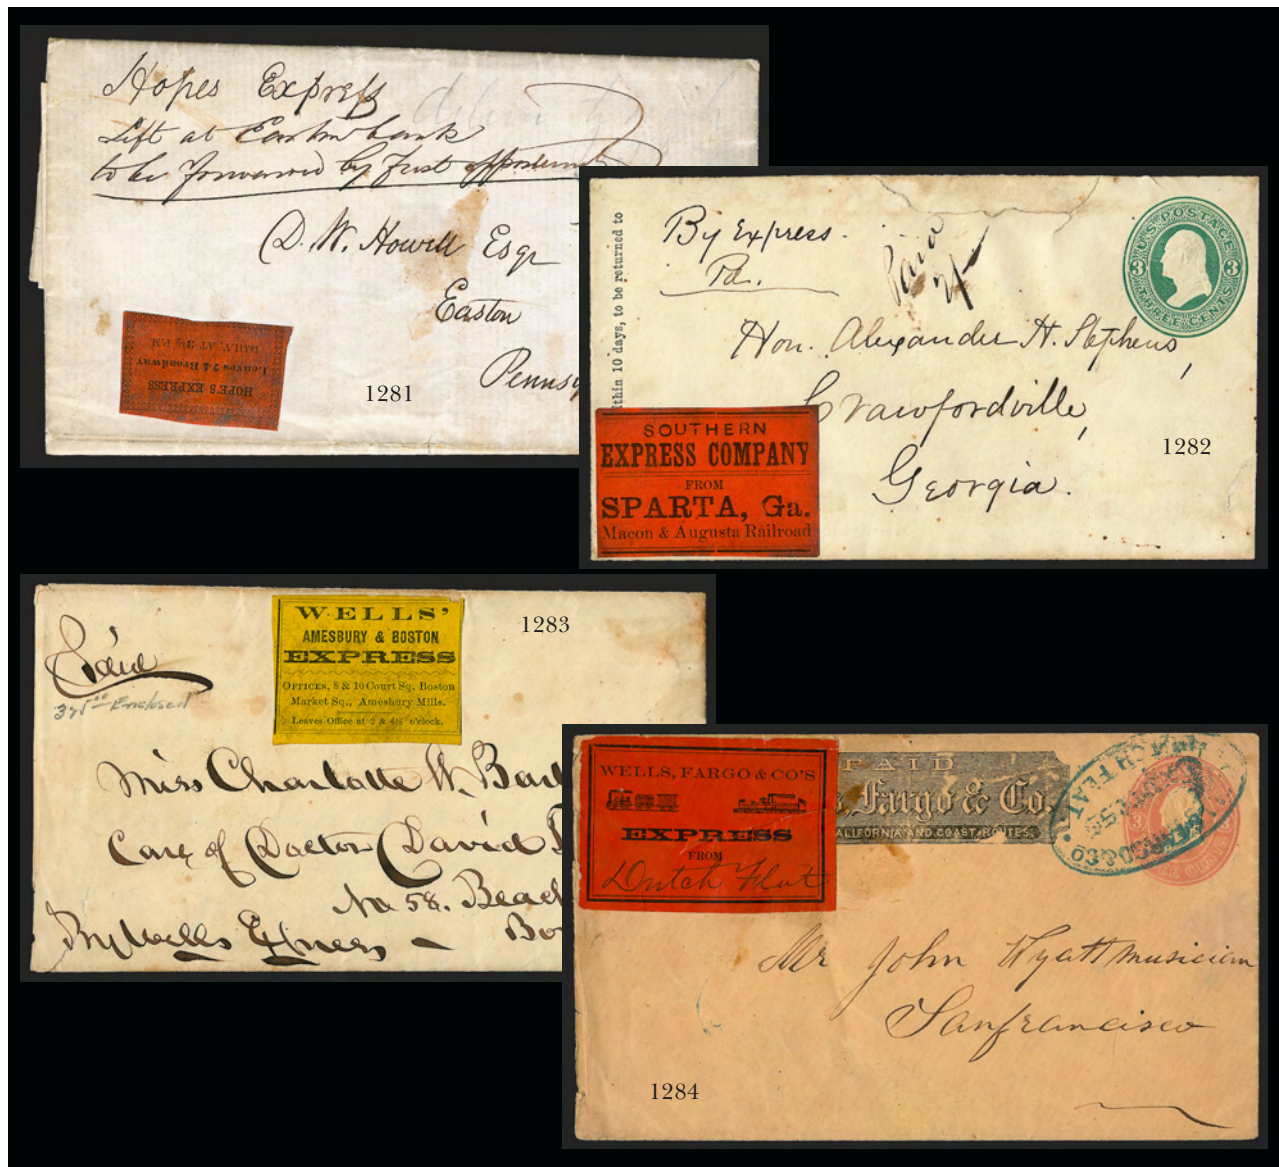 Hopes Express
Left at Easton bank
to be forwarded by first
D. W. Howell Esqr
Easton
Pennsy
HOPE'S EXPRESS
Leaves 74 Broadway
DAILY, AT 3½ P.M
1281
ithin 10 days, to be returned to
By Express.
Pd.
Paid
U.S. POSTAGE
3 3
THREE CENTS
Hon. Alexander H. Stephens,
Crawfordville,
Georgia.
SOUTHERN
EXPRESS COMPANY
FROM
SPARTA, Ga.
Macon & Augusta Railroad
1282
Paid
Enclosed
WELLS'
AMESBURY & BOSTON
EXPRESS
OFFICES, 8 & 10 Court Sq. Boston
Market Sq., Amesbury Mills.
Leaves Office at 2 & 4½ o'clock.
1283
Miss Charlotte W. Ba
Care of Doctor David
No 58. Beach
Bo
By Wells Express
WELLS, FARGO & CO'S
EXPRESS
FROM
Dutch Flat
PAID
s, Fargo & Co.
ALIFORNIA AND COAST ROUTES.
EXPRESS
3
Mr John Wyatt musician
Sanfrancisco
1284